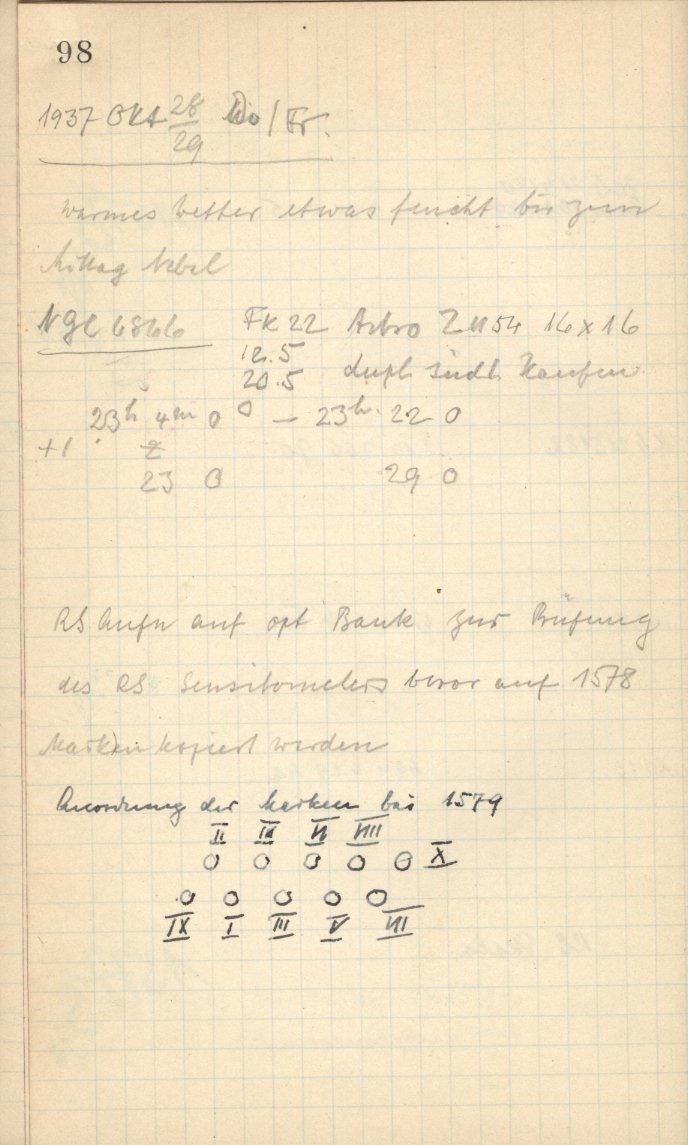 98
1937 Okt 28/29 Do/Fr.
warmes Wetter etwas feucht bis zum
Mittag Nebel
NGC 6866 FK 22 Astro Z 1154 16 x 16
12.5
20.5 dupl südl Haufen
23h 4m 0 0 — 23h 22 0
+1 2
23 0 29 0
RS Aufn auf opt Bank zur Prüfung
des RS Sensitometers bevor auf 1578
Marken kopiert werden
Anordnung der Marken bei 1579
II IV VI VIII
0 0 0 0 0 X
0 0 0 0 0
IX I III V VII